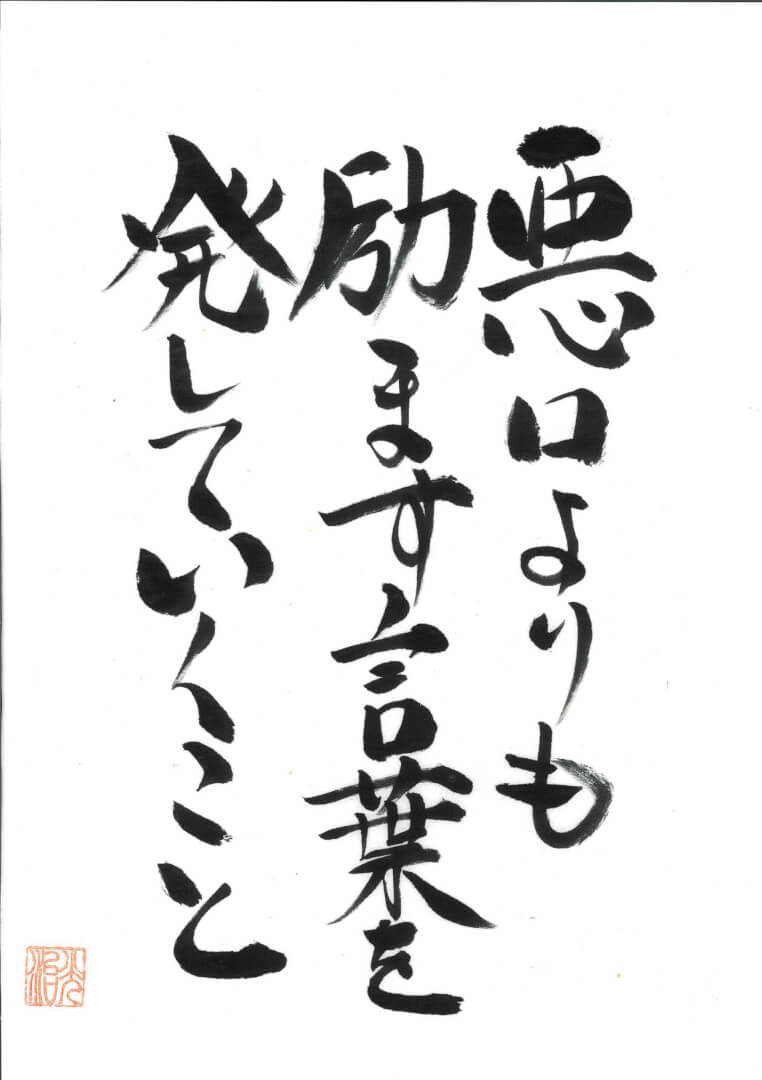 悪口よりも
励ます言葉を
発していくこと